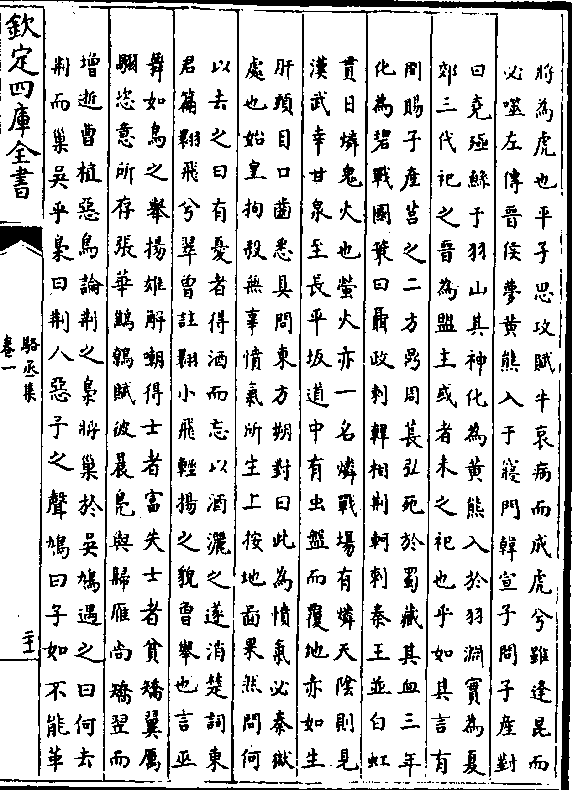 將為虎也平子思玄賦牛哀病而成虎兮雖逢昆而
必噬左傳晉侯夢黃熊入于寢門韓宣子問子產對
曰堯殛鯀于羽山其神化為黃熊入於羽淵實為夏
郊三代祀之晉為盟主或者未之祀也乎如其言有
間賜子產莒之二方鼎周萇弘死於蜀藏其血三年
化為碧戰國策曰聶政刺韓相荆軻刺秦王並白虹
貫日燐鬼火也螢火亦一名燐戰場有燐天陰則見
漢武幸甘泉至長平坂道中有虫盤而覆地亦如生
肝頭目口齒悉具問東方朔對曰此為憤氣必秦獄
處也始皇拘殺無辜憤氣所生上按地圖果然問何
以去之曰有憂者得酒而忘以酒灑之遂消楚詞東
君篇翾飛兮翠曾註翾小飛輕揚之貌曾舉也言巫
舞如鳥之舉揚雄解嘲得士者富失士者貧矯翼厲
翮恣意所存張華鷦鷯賦彼晨鳧與歸雁尚矯翌而
增逝曹植惡鳥論荆之梟將巢於吳鳩遇之曰何去
荆而巢吳乎梟曰荆人惡予之聲鳩曰子如不能革
欽定四庫全書
駱丞集
卷一